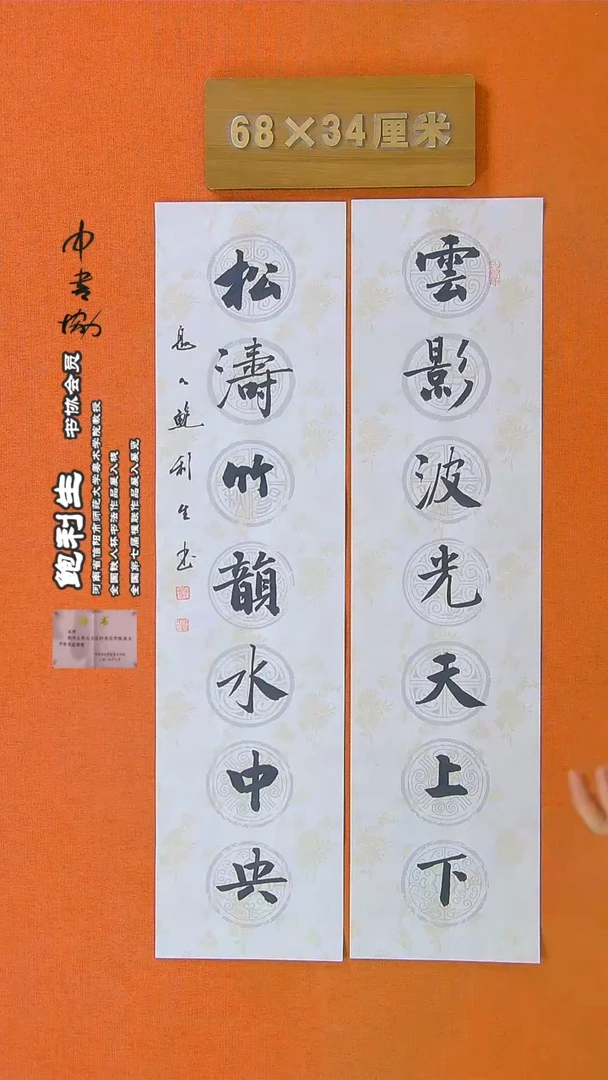 68×34厘米
雲影波光天上下
松濤竹韻水中央
鲍利生书
中书协
鲍利生 书协会员
河南省信阳市师范大学美术学院教授
全国铁人杯书法作品展入展
全国第七届楹联作品展入展览